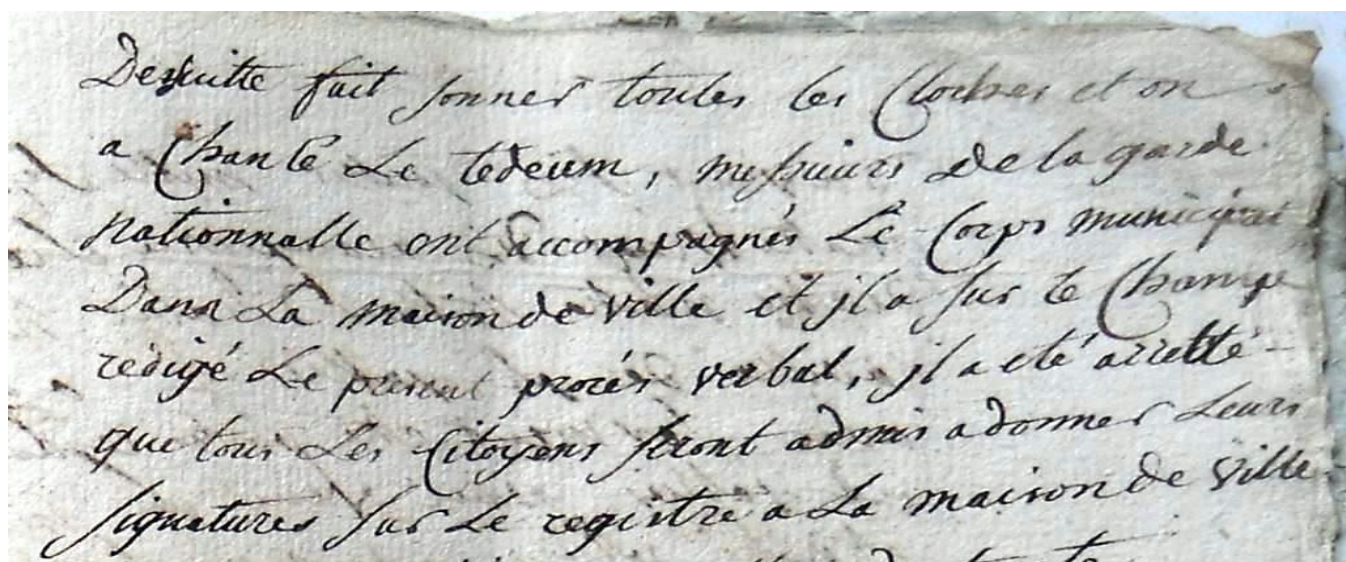 Desuitte fait sonner toutes les Cloches et on
a Chanté Le tedeum, messieurs de la garde
nationnalle ont accompagnés Le Corps municipal
Dans La maison de ville et jl a sur le Champ
rédigé Le present procés verbal, jl a eté arretté
que tous Les Citoyens seront admis a donner Leurs
signatures sur Le registre a La maison de ville